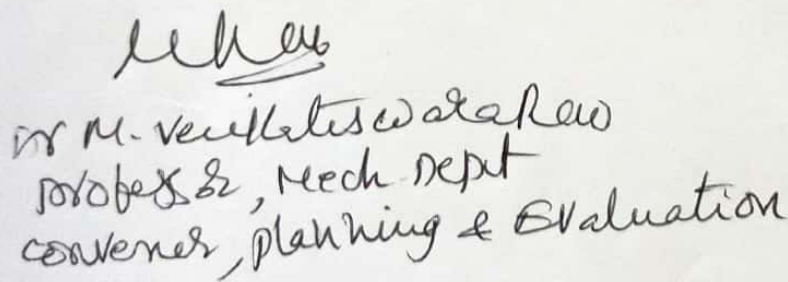 Dr M. Venkateswara Rao
professor, Mech Dept
convener, planning & Evaluation